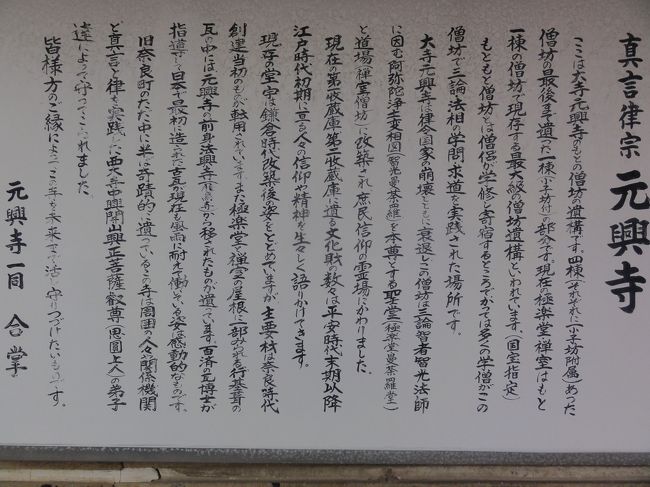 真言律宗 元興寺
ここは大寺元興寺のもとの僧坊の遺構です。四棟(それぞれに小子坊附属)あった
僧坊の最後まで遺った一棟(小子坊付)の部分です。現在の極楽堂、禅室はもと
一棟の僧坊で現存する最大級の僧坊遺構といわれています。(国宝指定)
もともと僧坊とは僧侶が学修し寄宿するところで、かつては多くの学僧がこの
僧坊で三論、法相の学問、求道を実践された場所です。
大寺元興寺は律令国家の崩壊とともに衰退し、この僧坊は三論智者智光法師
に因む阿弥陀浄土変相図(智光曼荼羅)を本尊とする聖堂(極楽堂、曼荼羅堂)
と道場(禅室、僧坊)に改築され庶民信仰の霊場にかわりました。
現在、第一收蔵庫、第二收蔵庫に遺る文化財の数々は平安時代末期以降
江戸時代初期に亘る人々の信仰や精神を生々しく語りかけてきます。
現存の堂宇は鎌倉時代改築後の姿をとどめていますが、主要材は奈良時代
創建当初のものが転用されています。また極楽堂と禅室の屋根に一部みられる行基葺の
瓦の中には元興寺の前身法興寺(飛鳥寺)から移されたものが遺っています。百済の瓦博士が
指導して日本で最初に造られた古瓦が現在も風雨に耐えて働いている姿は感動的なものです。
旧奈良町のただ中に半ば奇跡的に遺っているこの寺は周囲の人々、関係機関
と真言と律を実践した西大寺中興開山興正菩薩叡尊(思圓上人)の弟子
達によって守ってこられました。
皆様方のご縁によってこの寺も未来まで活かし守りつづけたいものです。
元興寺一同 合掌